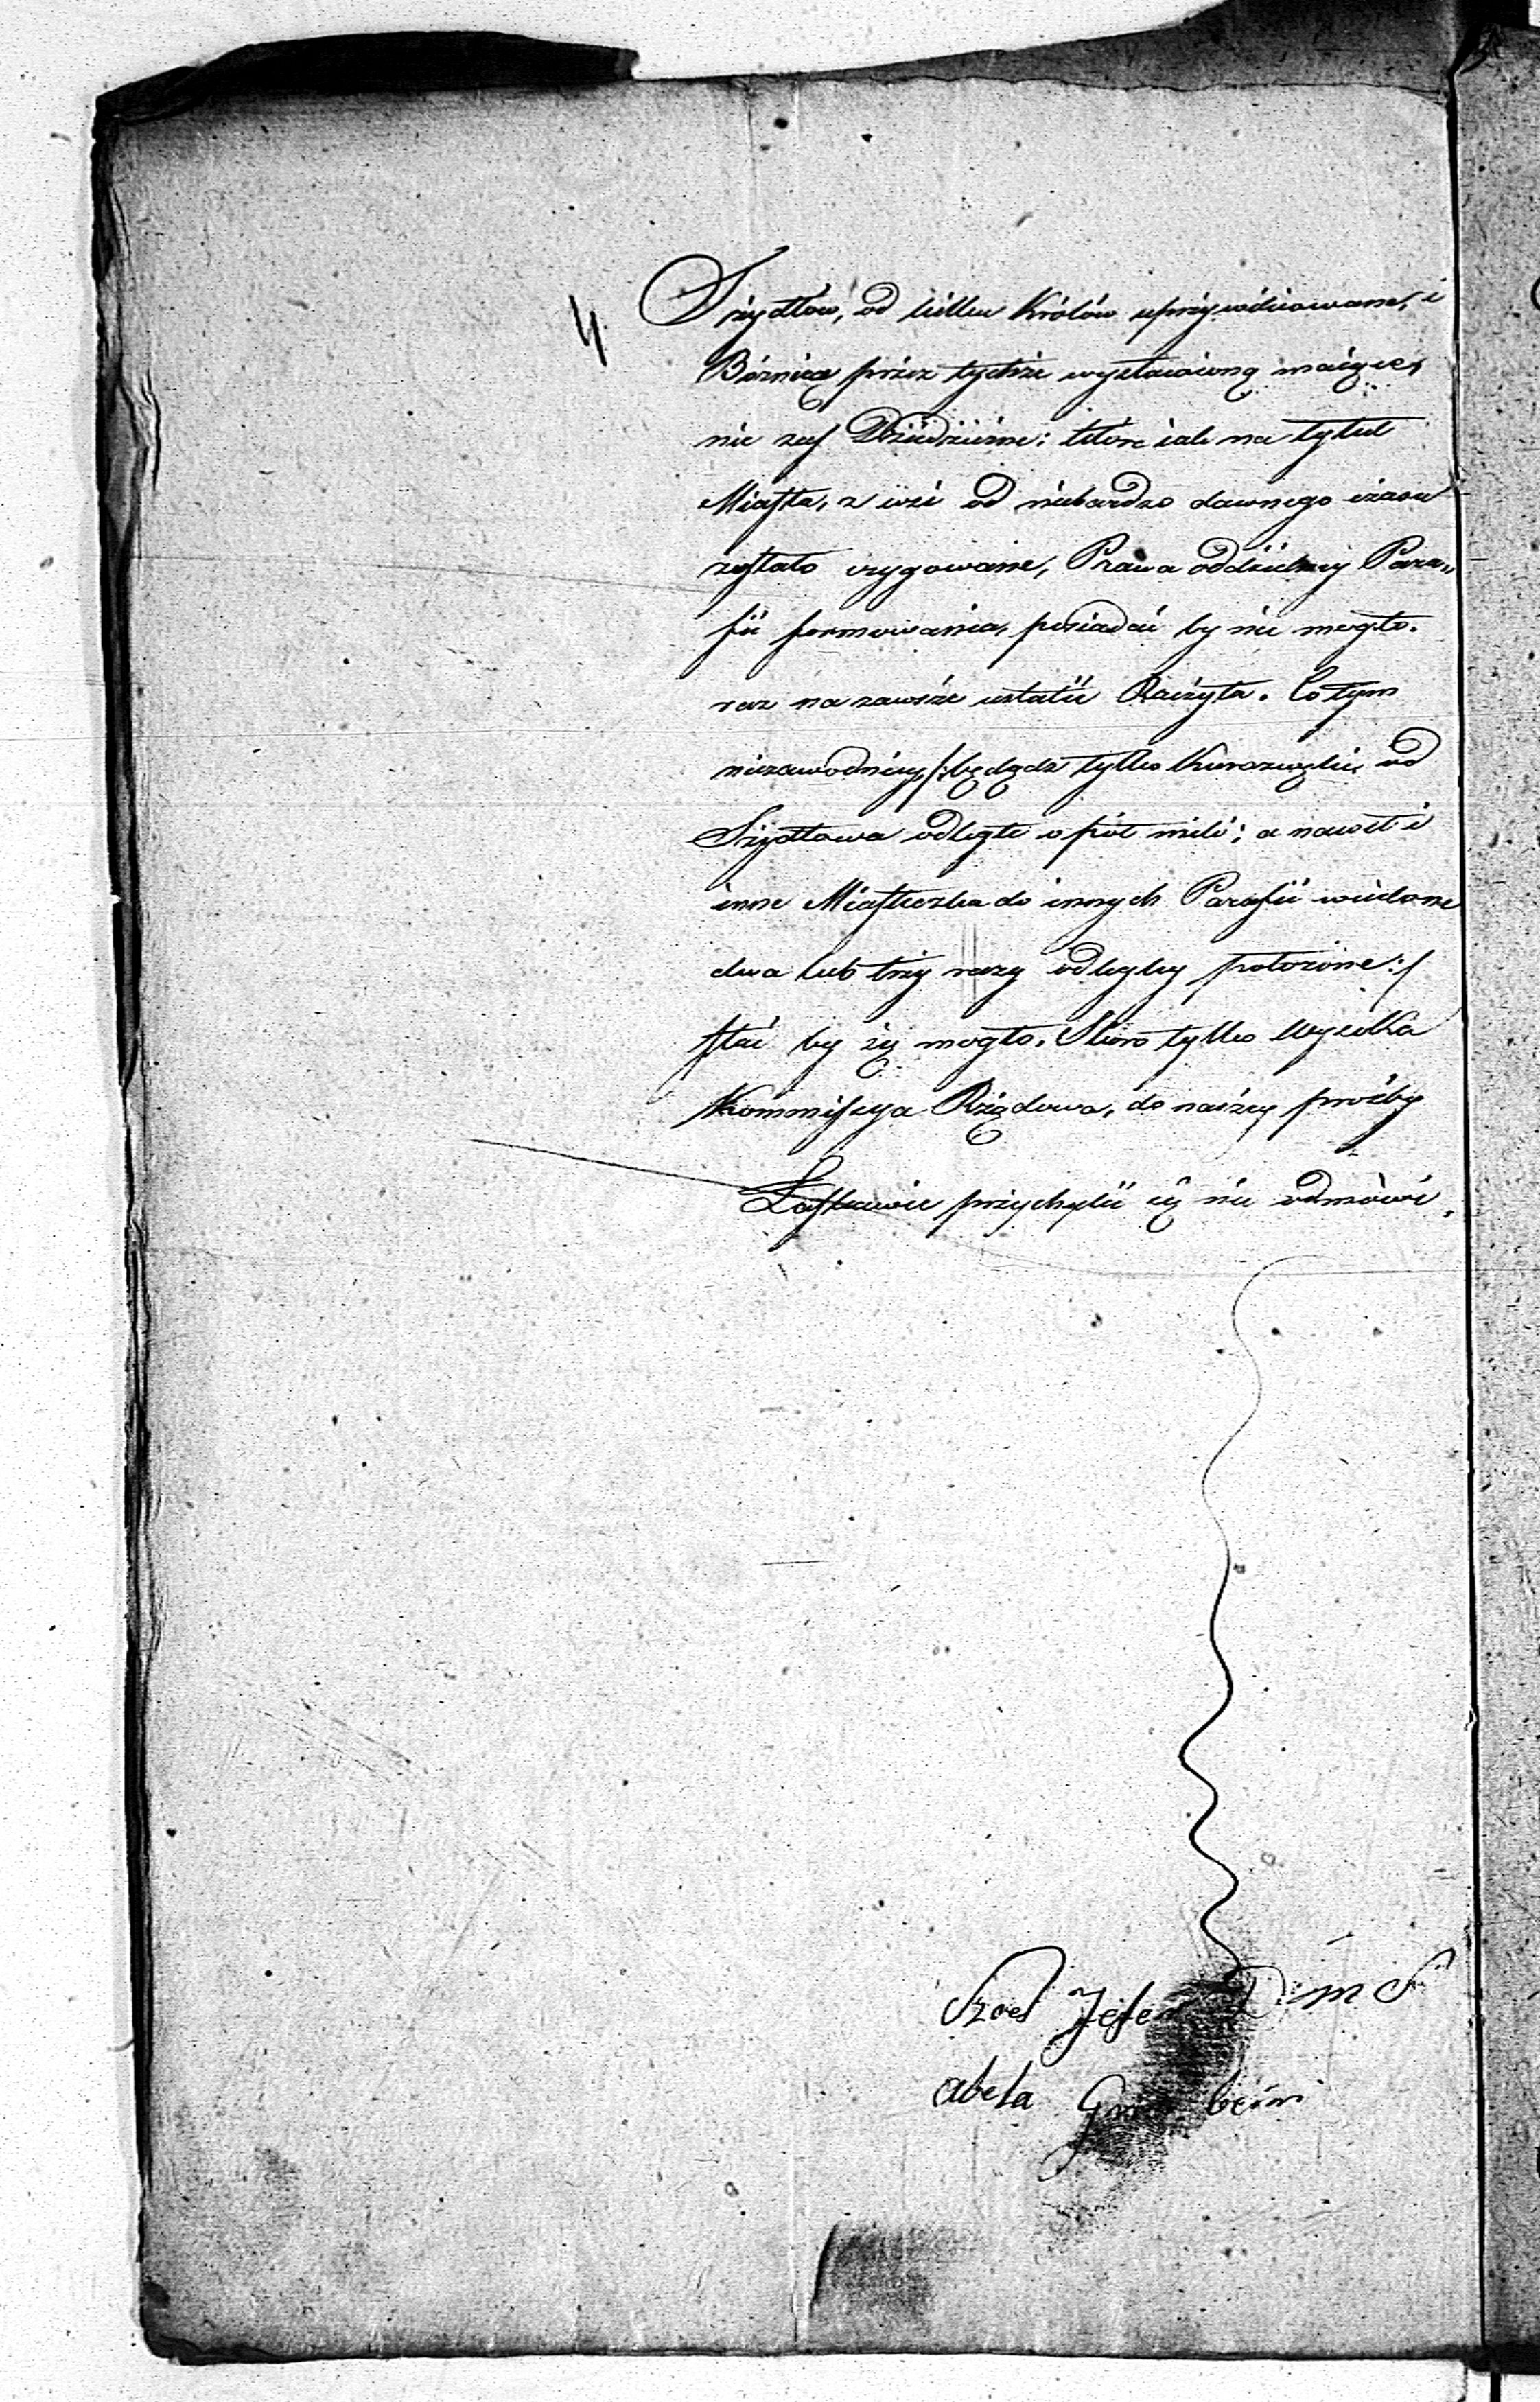 4
Szydłow, od kilku Królów uprzywiliowane, i
Bóznicę przez tychże wystawioną maiące,
nie zaś Dziedziczne: które iak na tytuł
Miasta, z wsi od niebardzo dawnego czasu
zostało erygowane, Prawa oddzielney Para„
fii formowania, posiadać by nie mogło.
raz na zawsze ustalić Raczyła. Co tym
niezawodniey /: będąc tylko Kurozwęki, od
Szydłowa odległe o pół mili; a nawet i
inne Miasteczka do innych Parafii wcielone
dwa lub trzy razy odległey położone :/
stać by się mogło. Skoro tylko Wysoka
Kommissya Rządowa, do naszey prośby
Łaskawie przychylić się nie odmówi.
abela